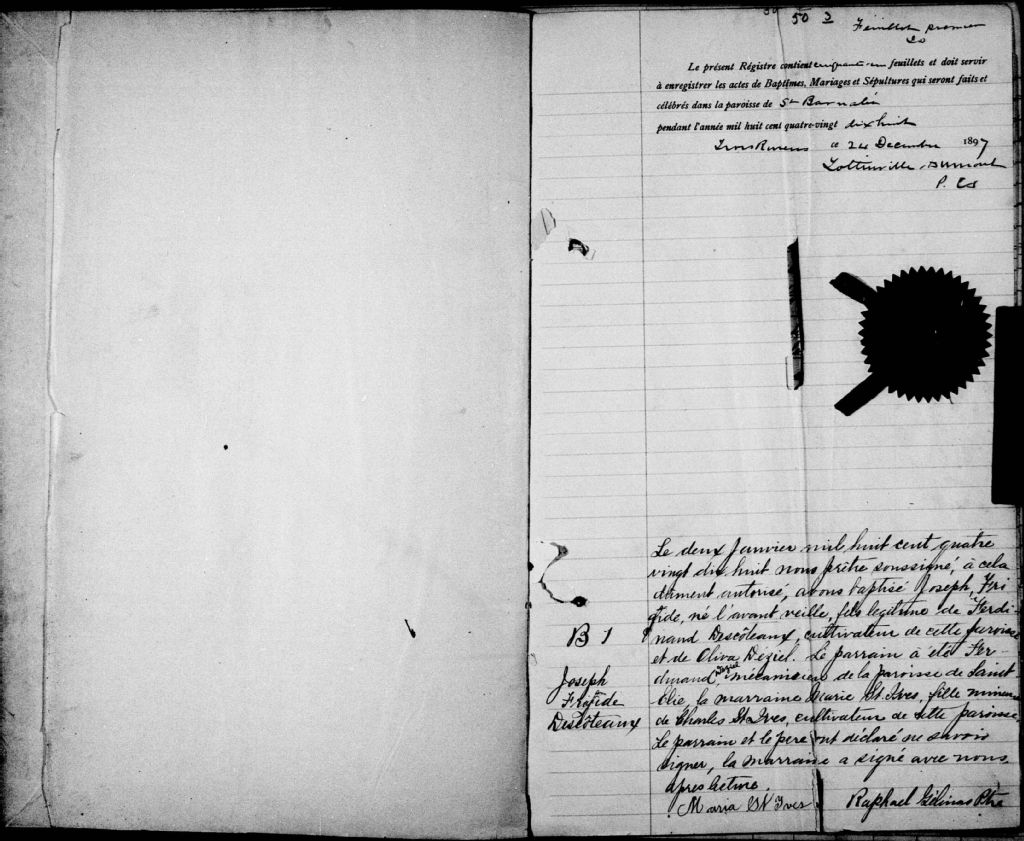 50 3
Feuillet premier
Le présent Régistre contient cinquante-un feuillets et doit servir
à enregistrer les actes de Baptêmes, Mariages et Sépultures qui seront faits et
célébrés dans la paroisse de St Barnabé
pendant l'année mil huit cent quatre-vingt dix huit
Trois Rivieres ce 24 Decembre 1897
Lottinville Dumont
P. Cs
Le deux Janvier mil huit cent quatre
vingt dix huit nous prêtre soussigné, à cela
dûment autorisé, avons baptisé Joseph, Fri
fide, né l'avant veille, fils légitime de Ferdi-
B 1
nand Descôteaux, cultivateur de cette paroisse
et de Oliva Déziel. Le parrain à été Fer-
Joseph
Frifide
Descôteaux
dinand Deziel mécanicien de la paroisse de Saint
Elie, la marraine Marie St. Ives, fille mineure
de Charles St Ives, cultivateur de cette paroisse.
Le parrain et le père ont déclaré ne savoir
signer, la marraine a signé avec nous.
après lecture.
Maria St Ives
Raphael Gélinas Ptre